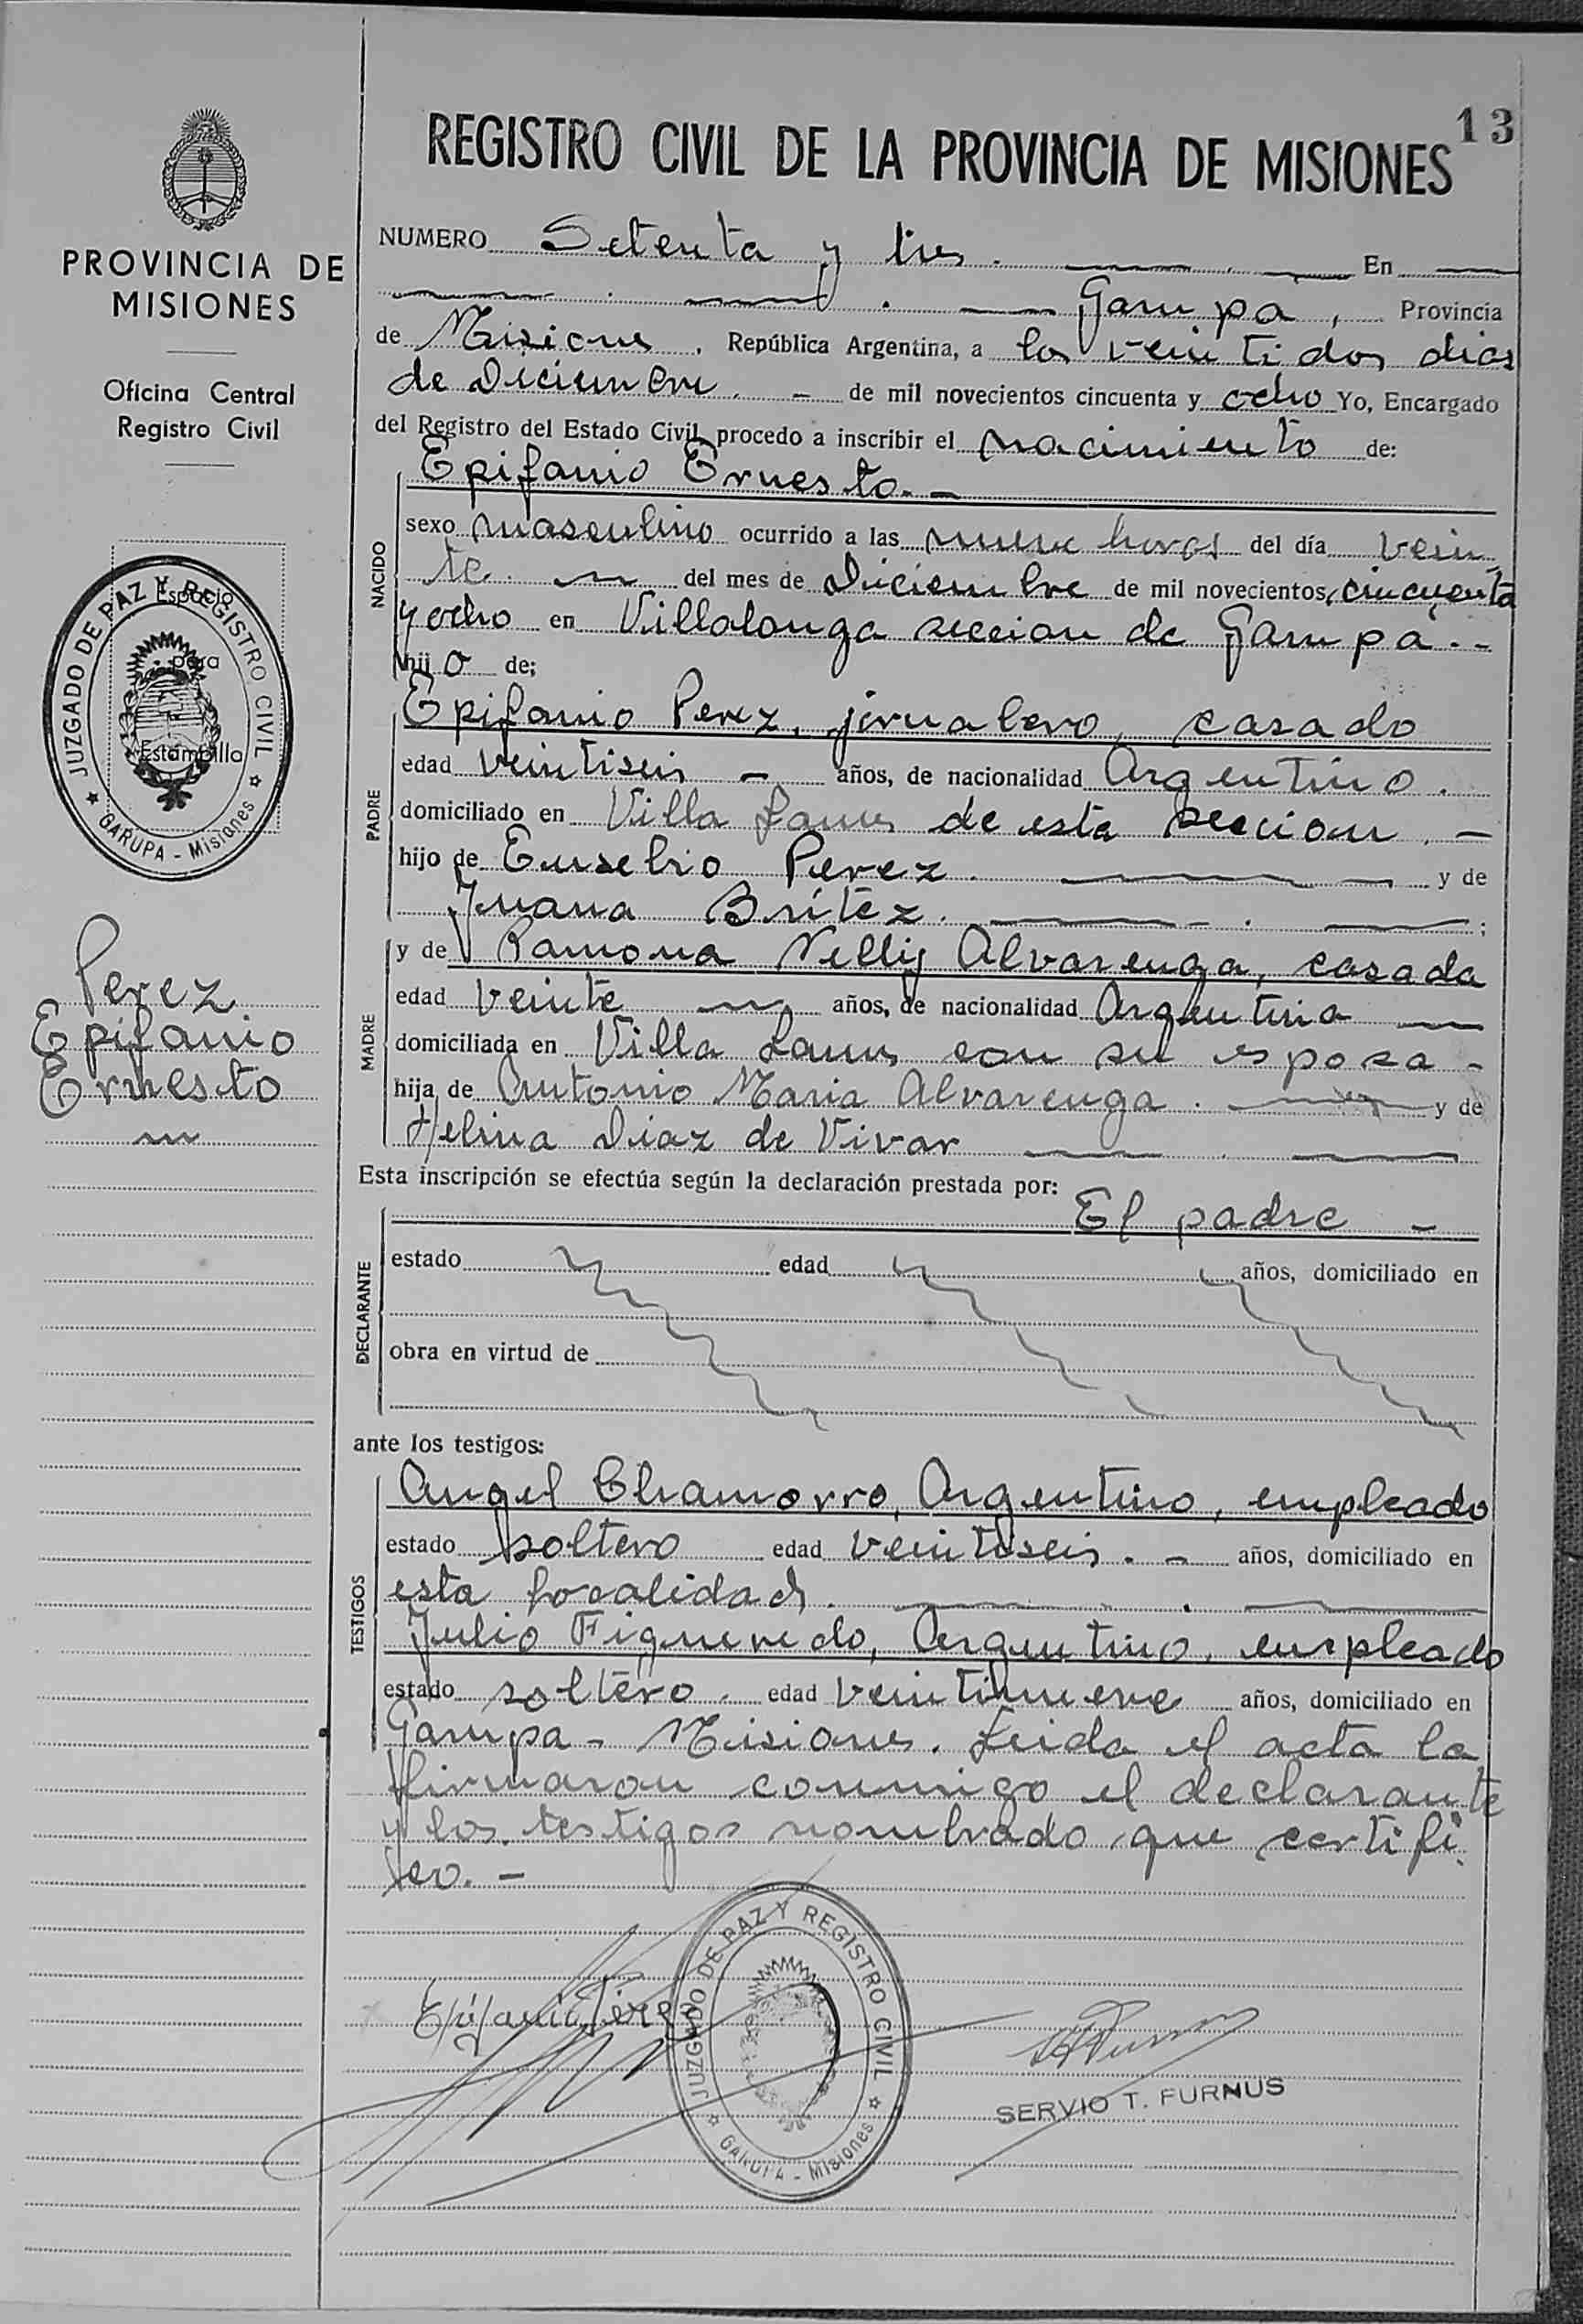 13
REGISTRO CIVIL DE LA PROVINCIA DE MISIONES
PROVINCIA DE
MISIONES
Oficina Central
Registro Civil
JUZGADO DE PAZ Y REGISTRO CIVIL
GARUPA - Misiones
Espacio
para
Estampillo
Perez
Epifanio
Ernesto
NUMERO Setenta y tres. En
Garupa, Provincia
de Misiones, República Argentina, a los veintidos dias
de Diciembre. - de mil novecientos cincuenta y ocho Yo, Encargado
del Registro del Estado Civil, procedo a inscribir el nacimiento de:
Epifanio Ernesto. -
NACIDO
sexo masculino ocurrido a las nueve horas del día vein
te. del mes de Diciembre de mil novecientos, cincuenta
y ocho en Villalonga seccion de Garupa. -
hijo de;
PADRE
Epifanio Perez, jornalero, casado
edad veintiseis - años, de nacionalidad Argentino.
domiciliado en Villa Lanus de esta seccion. -
hijo de Eusebio Perez. y de
Juana Britez. ;
MADRE
y de Ramona Nelly Alvarenga, casada
edad veinte años, de nacionalidad Argentina
domiciliada en Villa Lanus con su esposo -
hija de Antonio Maria Alvarenga. y de
Helina Diaz de Vivar
Esta inscripción se efectúa según la declaración prestada por:
El padre -
DECLARANTE
estado edad años, domiciliado en
obra en virtud de
ante los testigos:
TESTIGOS
Angel Chamorro, Argentino, empleado
estado soltero edad veintiseis. - años, domiciliado en
esta localidad.
Julio Figueredo, Argentino, empleado
estado soltero. edad veintinueve años, domiciliado en
Garupa - Misiones. Leida el acta la
firmaron conmigo el declarante
y los testigos nombrado que certifi
co. -
Epifanio Perez
JUZGADO DE PAZ Y REGISTRO CIVIL
GARUPA - Misiones
SERVIO T. FURNUS